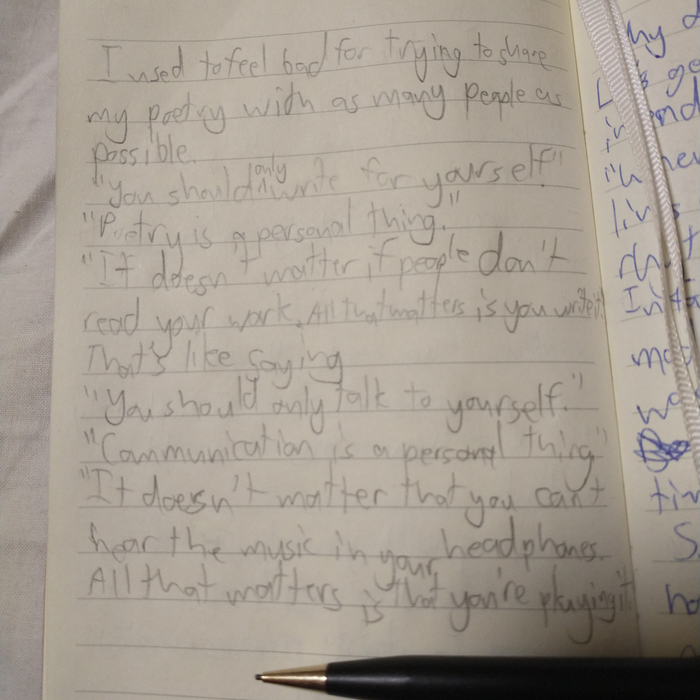 I used to feel bad for trying to share
my poetry with as many people as
possible.
"You should only write for yourself"
"Poetry is a personal thing."
"It doesn't matter if people don't
read your work. All that matters is you write it
That's like saying
"You should only talk to yourself."
"Communication is a personal thing"
"It doesn't matter that you can't
hear the music in your headphones.
All that matters is that you're playing it
my